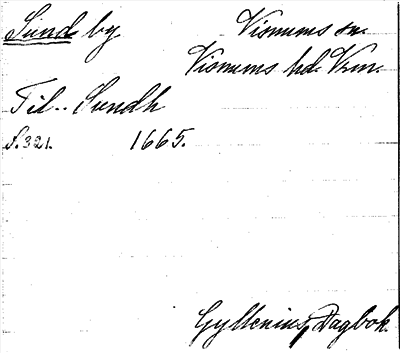 Sund by Visnums sn.
Visnums hd. Vrm.
Til.. Sundh
S. 321. 1665.
Gyllenius, Dagbok.